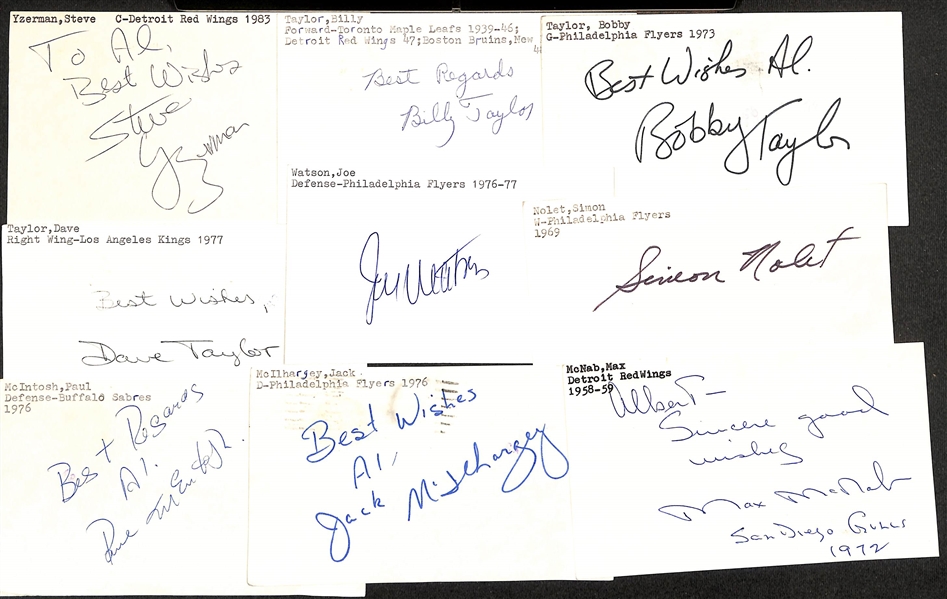 Yzerman, Steve C-Detroit Red Wings 1983
To Al,
Best Wishes
Steve
Yzerman
Taylor,Billy
Forward-Toronto Maple Leafs 1939-46;
Detroit Red Wings 47;Boston Bruins,New
Best Regards
Billy Taylor
Taylor, Bobby
G-Philadelphia Flyers 1973
Best Wishes Al.
Bobby Taylor
Taylor,Dave
Right Wing-Los Angeles Kings 1977
Best Wishes,
Dave Taylor
Watson,Joe
Defense-Philadelphia Flyers 1976-77
Joe Watson
Nolet,Simon
W-Philadelphia Flyers
1969
Simon Nolet
McIntosh,Paul
Defense-Buffalo Sabres
1976
Best Regards
Al.
McIlhargey,Jack
D-Philadelphia Flyers 1976
Best Wishes
Al,
Jack McIlhargey
McNab,Max
Detroit RedWings
1958-59
Albert-
Sincere good
wishes
Max McNab
San Diego Gulls
1972